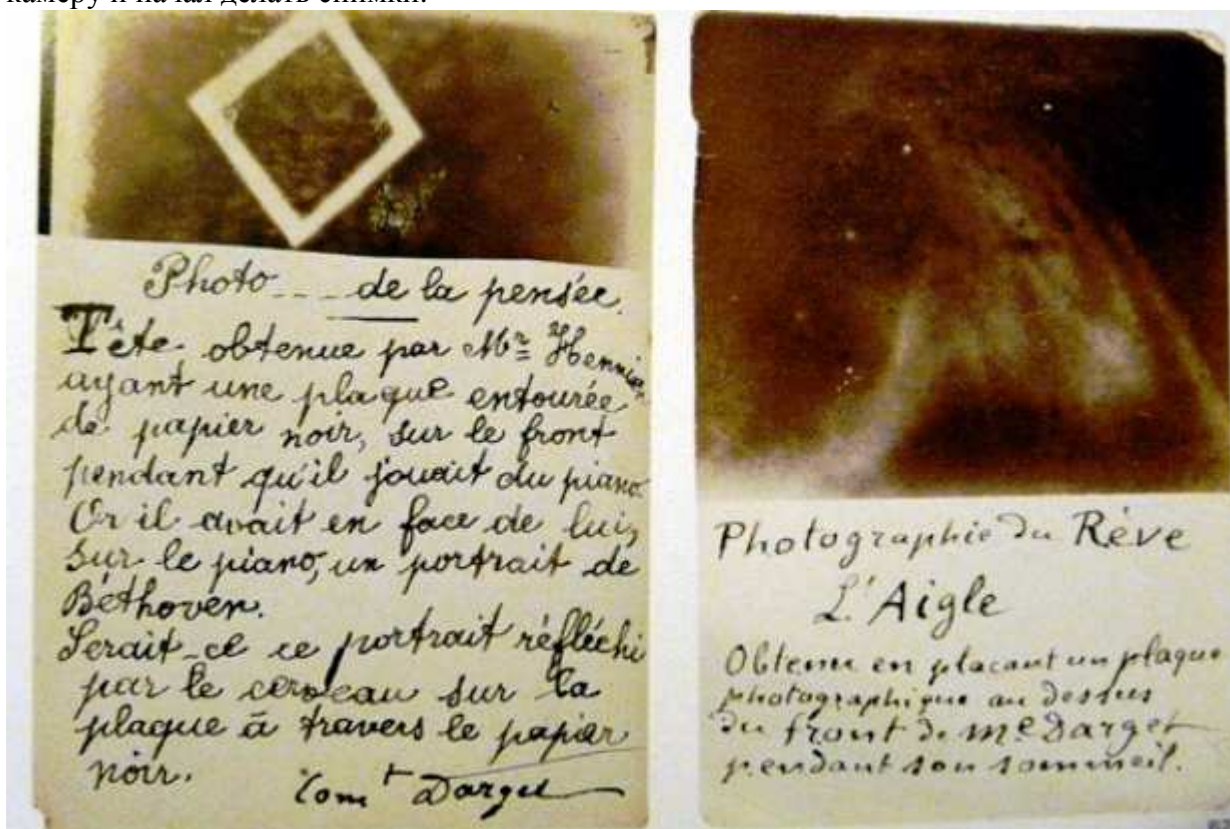 камеру и начал делать снимки.
Photo --- de la pensée.
Tête obtenue par Mr Hennier
ayant une plaque entourée
de papier noir, sur le front
pendant qu'il jouait du piano.
Or il avait en face de lui,
sur le piano, un portrait de
Béthoven.
Serait-ce ce portrait réfléchi
par le cerveau sur la
plaque à travers le papier
noir.
Comt Darget
Photographie du Rève
L'Aigle
Obtenue en placant un plaque
photographique au dessus
du front de Me Darget
pendant son sommeil.